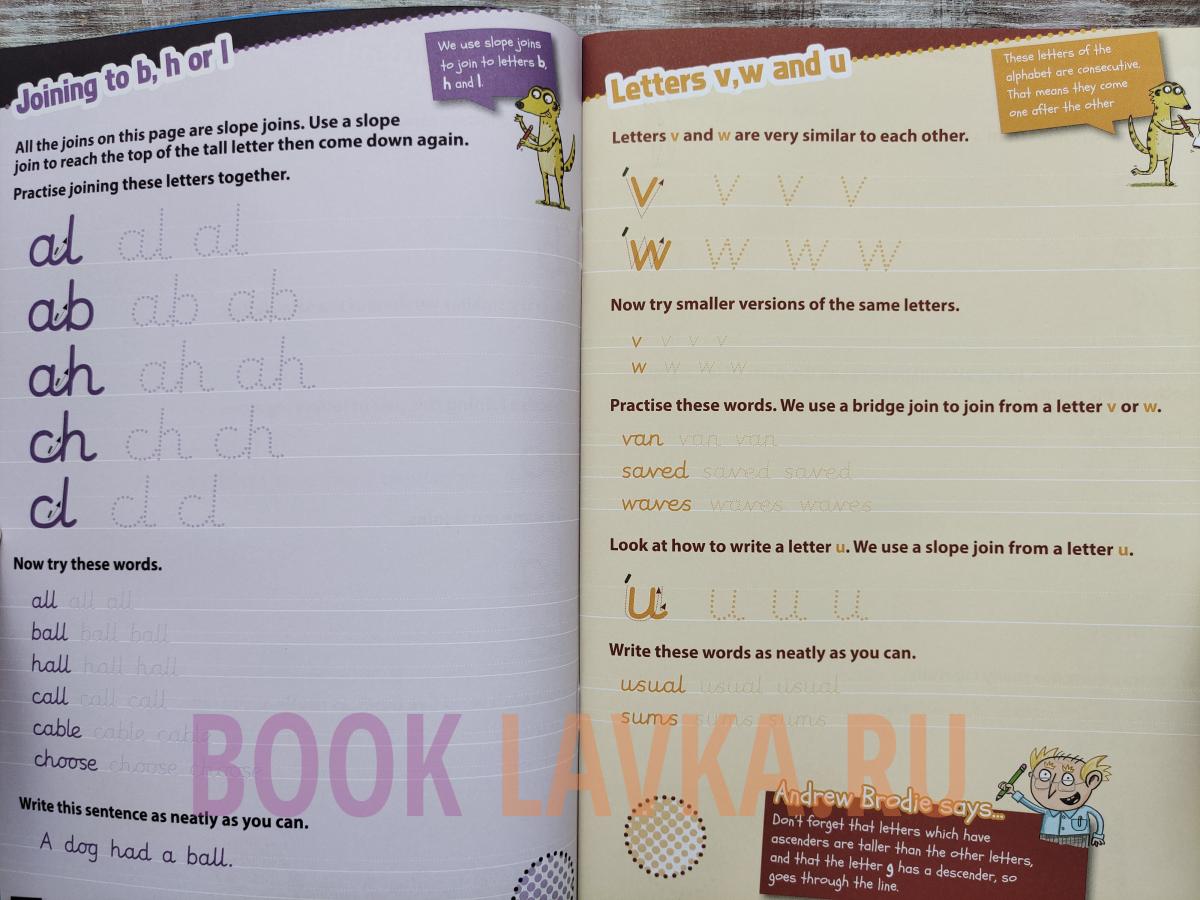 Joining to b, h or l
We use slope joins
to join to letters b,
h and l.
All the joins on this page are slope joins. Use a slope
join to reach the top of the tall letter then come down again.
Practise joining these letters together.
al al al
ab ab ab
ah ah ah
ch ch ch
cl cl cl
Now try these words.
all all all
ball ball ball
hall hall hall
call call call
cable cable cable
choose choose choose
Write this sentence as neatly as you can.
A dog had a ball.
Letters v,w and u
These letters of the
alphabet are consecutive.
That means they come
one after the other
Letters v and w are very similar to each other.
v v v v
w w w w
Now try smaller versions of the same letters.
v v v v
w w w w
Practise these words. We use a bridge join to join from a letter v or w.
van van van
saved saved saved
waves waves waves
Look at how to write a letter u. We use a slope join from a letter u.
u u u u
Write these words as neatly as you can.
usual usual usual
sums sums sums
Andrew Brodie says...
Don't forget that letters which have
ascenders are taller than the other letters,
and that the letter g has a descender, so
goes through the line.
BOOK LAVKA.RU